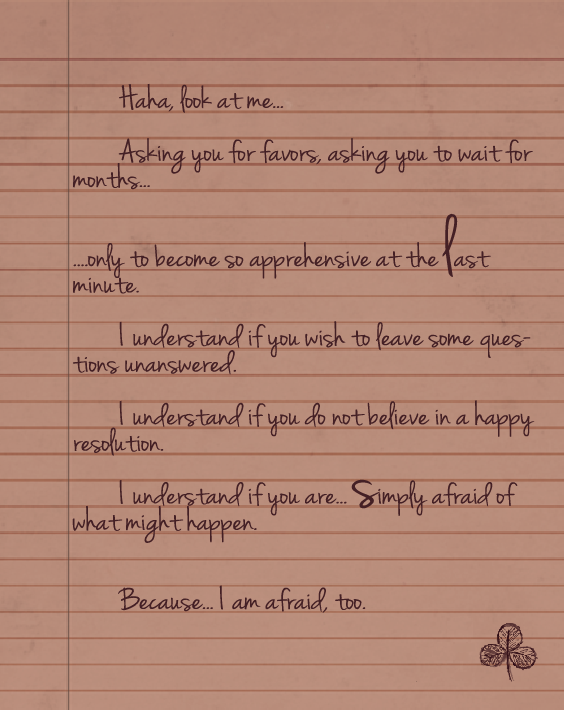 Haha, look at me...
Asking you for favors, asking you to wait for
months...
....only to become so apprehensive at the last
minute.
I understand if you wish to leave some ques-
tions unanswered.
I understand if you do not believe in a happy
resolution.
I understand if you are... Simply afraid of
what might happen.
Because... I am afraid, too.